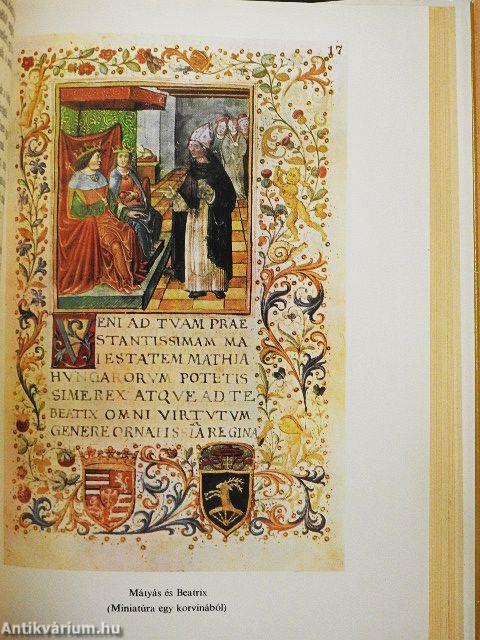 17
VENI AD TVAM PRAE
STANTISSIMAM MA
IESTATEM MATHIA
HVNGARORVM POTETIS
SIME REX ATQVE AD TE
BEATIX OMNI VIRTVTVM
GENERE ORNATISSIA REGINA
Mátyás és Beatrix
(Miniatúra egy korvinából)
Antikvárium.hu